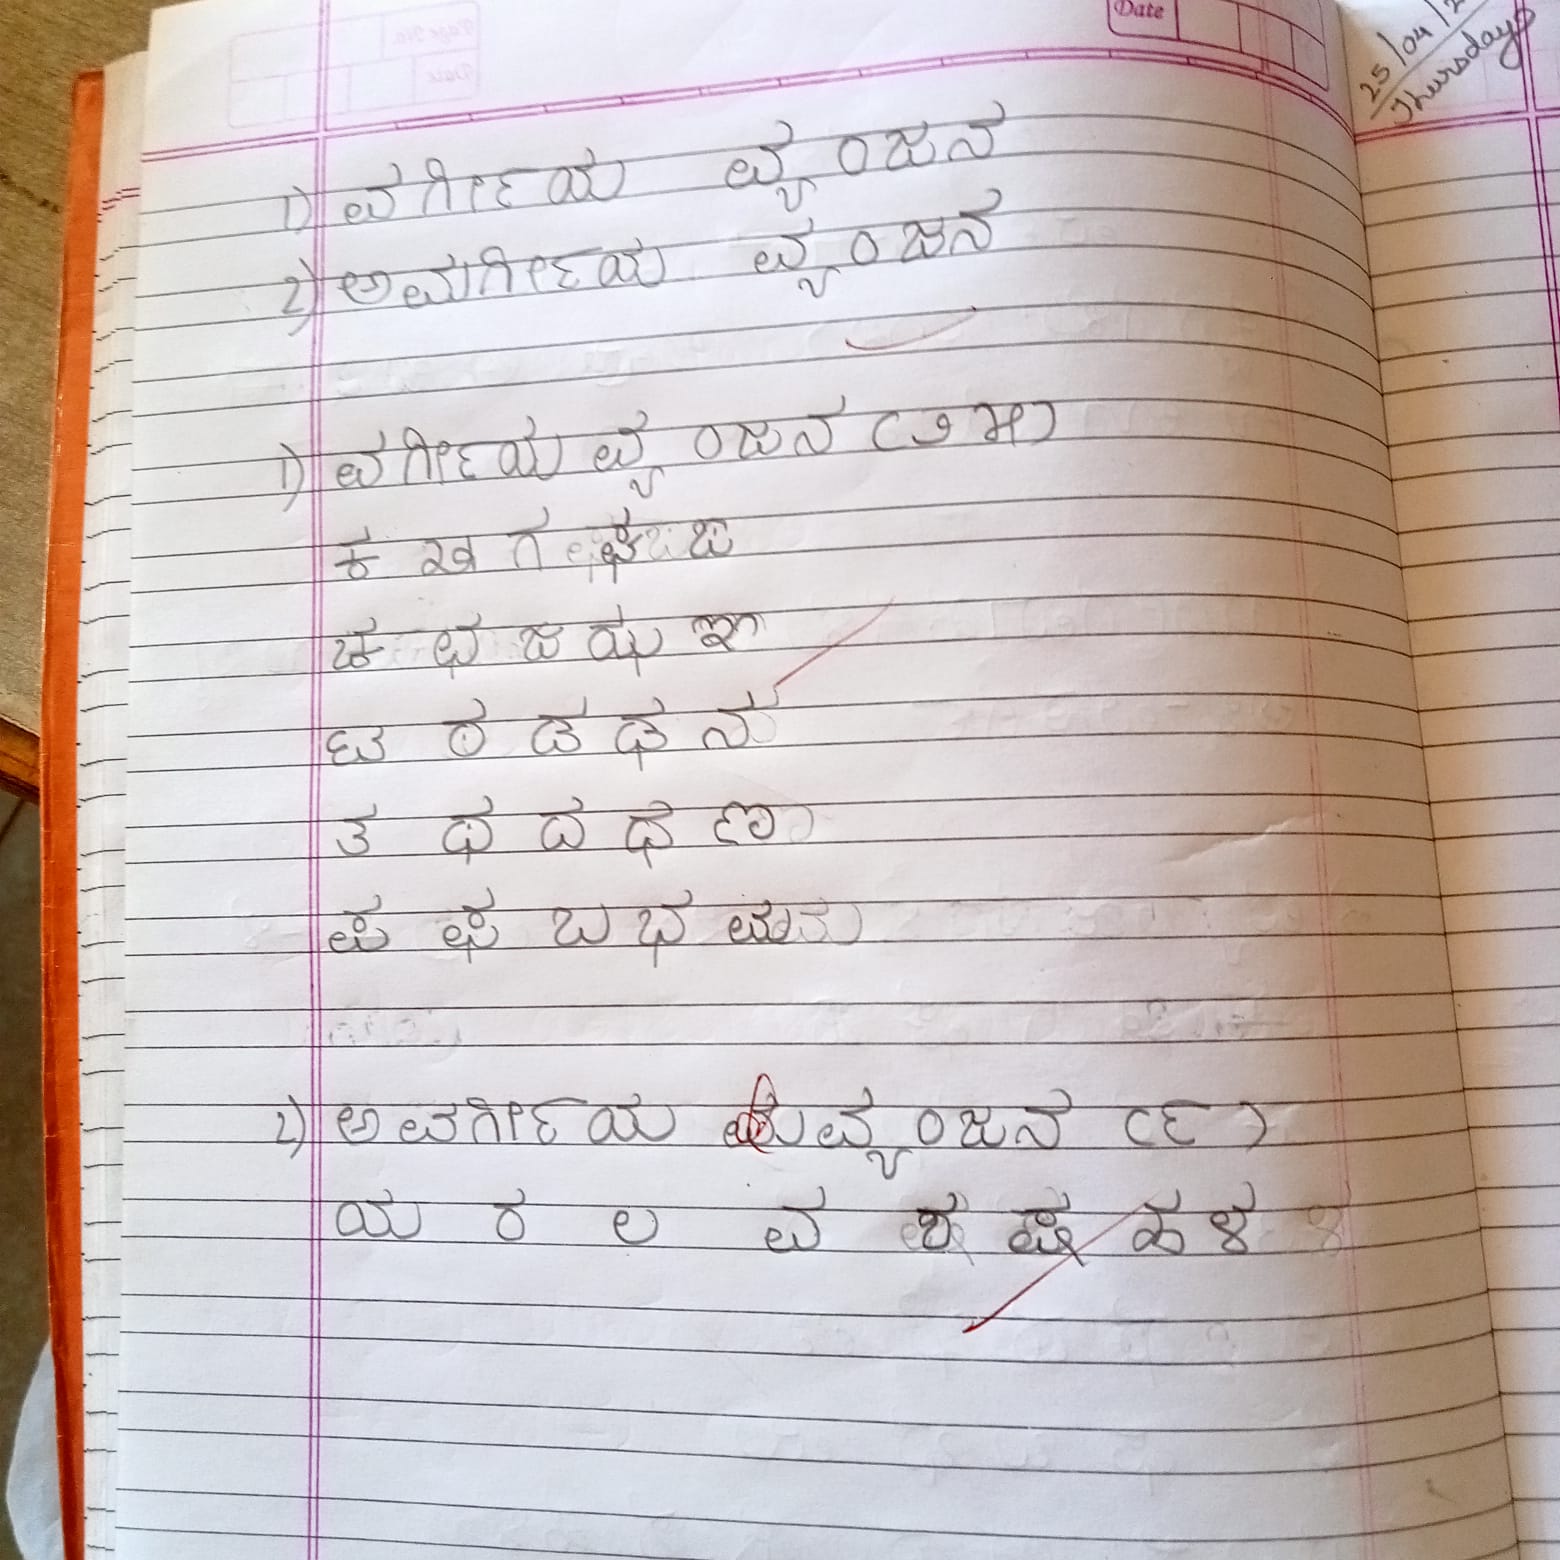 Date
25/04/2
Thursday
1) ವರ್ಗೀಯ ವ್ಯಂಜನ
2) ಅವರ್ಗೀಯ ವ್ಯಂಜನ
1) ವರ್ಗೀಯ ವ್ಯಂಜನ (೨೫)
ಕ ಖ ಗ ಘ ಙ
ಚ ಛ ಜ ಝ ಞ
ಟ ಠ ಡ ಢ ನ
ತ ಥ ದ ಧ ಣ
ಪ ಫ ಬ ಭ ಮ
2) ಅವರ್ಗೀಯ ವ್ಯಂಜನ (೯)
ಯ ರ ಲ ವ ಶ ಷ ಹ ಳ